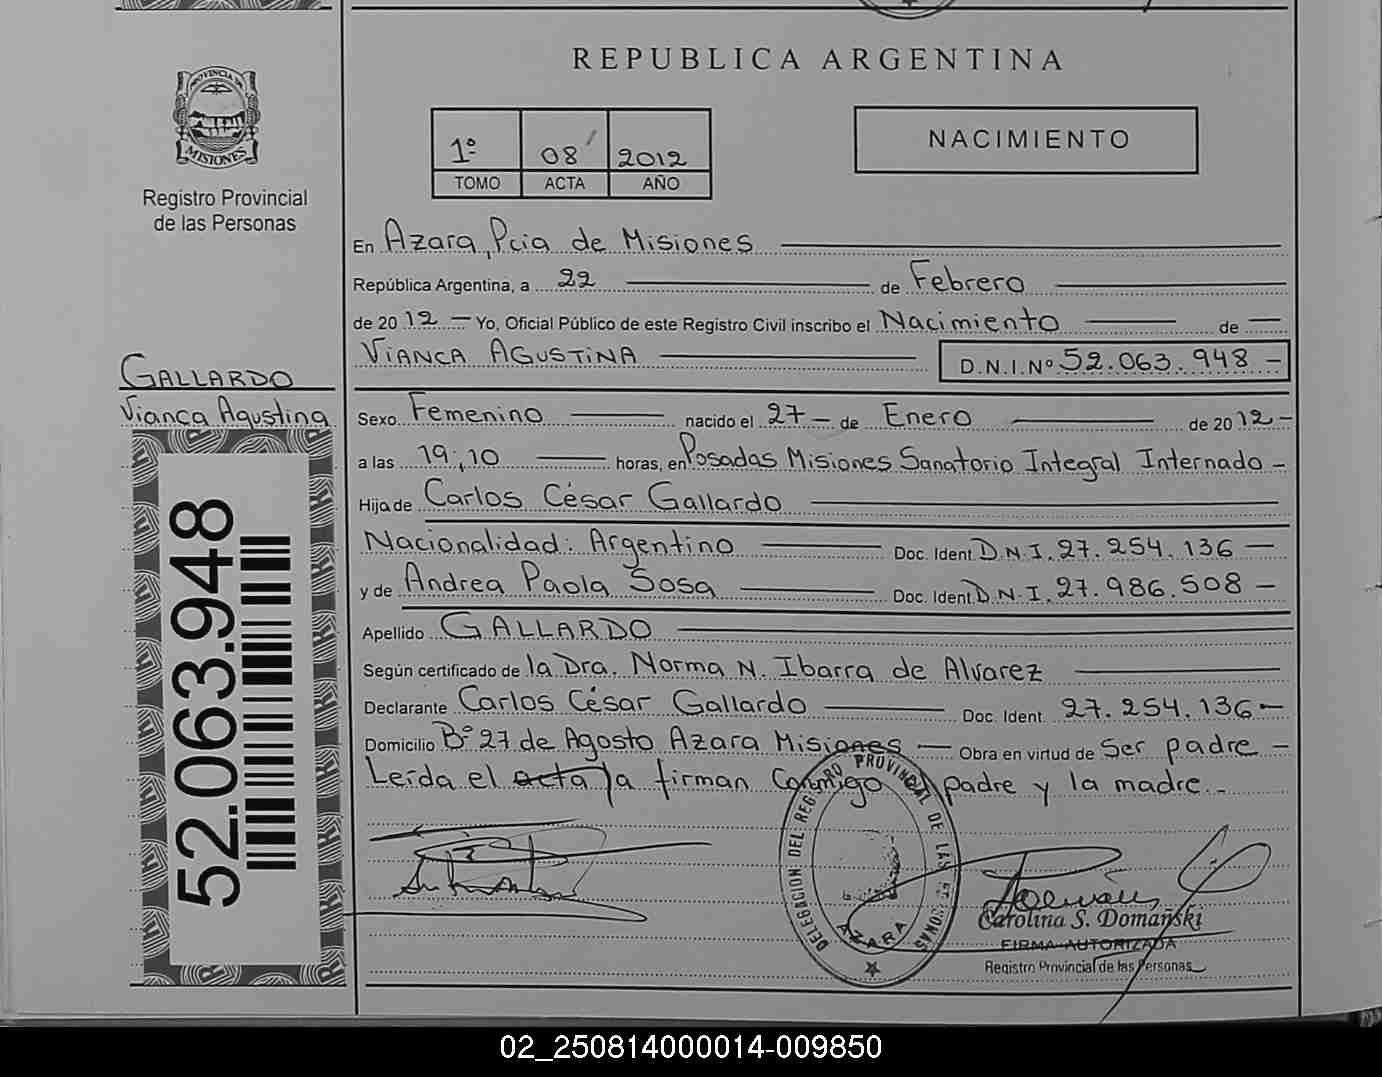 REPUBLICA ARGENTINA
PROVINCIA DE
MISIONES
Registro Provincial
de las Personas
1º 08 2012
TOMO ACTA AÑO
NACIMIENTO
En Azara, Pcia de Misiones
República Argentina, a 22 de Febrero
de 20 12 — Yo, Oficial Público de este Registro Civil inscribo el Nacimiento de
VIANCA AGUSTINA D.N.I.Nº 52.063.948 -
GALLARDO
Vianca Agustina
Sexo Femenino nacido el 27 - de Enero de 20 12 -
a las 19;10 horas, en Posadas Misiones Sanatorio Integral Internado -
Hija de Carlos César Gallardo
Nacionalidad: Argentino Doc. Ident. D.N.I. 27.254.136 —
y de Andrea Paola Sosa Doc. Ident. D.N.I. 27.986.508 -
Apellido GALLARDO
Según certificado de la Dra. Norma N. Ibarra de Alvarez
Declarante Carlos César Gallardo Doc. Ident. 27.254.136 -
Domicilio Bº 27 de Agosto Azara Misiones — Obra en virtud de Ser padre -
Leída el acta la firman Conmigo el padre y la madre. -
52.063.948
DELEGACION DEL REGISTRO PROVINCIAL DE LAS PERSONAS
AZARA
Carolina S. Domański
FIRMA AUTORIZADA
Registro Provincial de las Personas
02_250814000014-009850